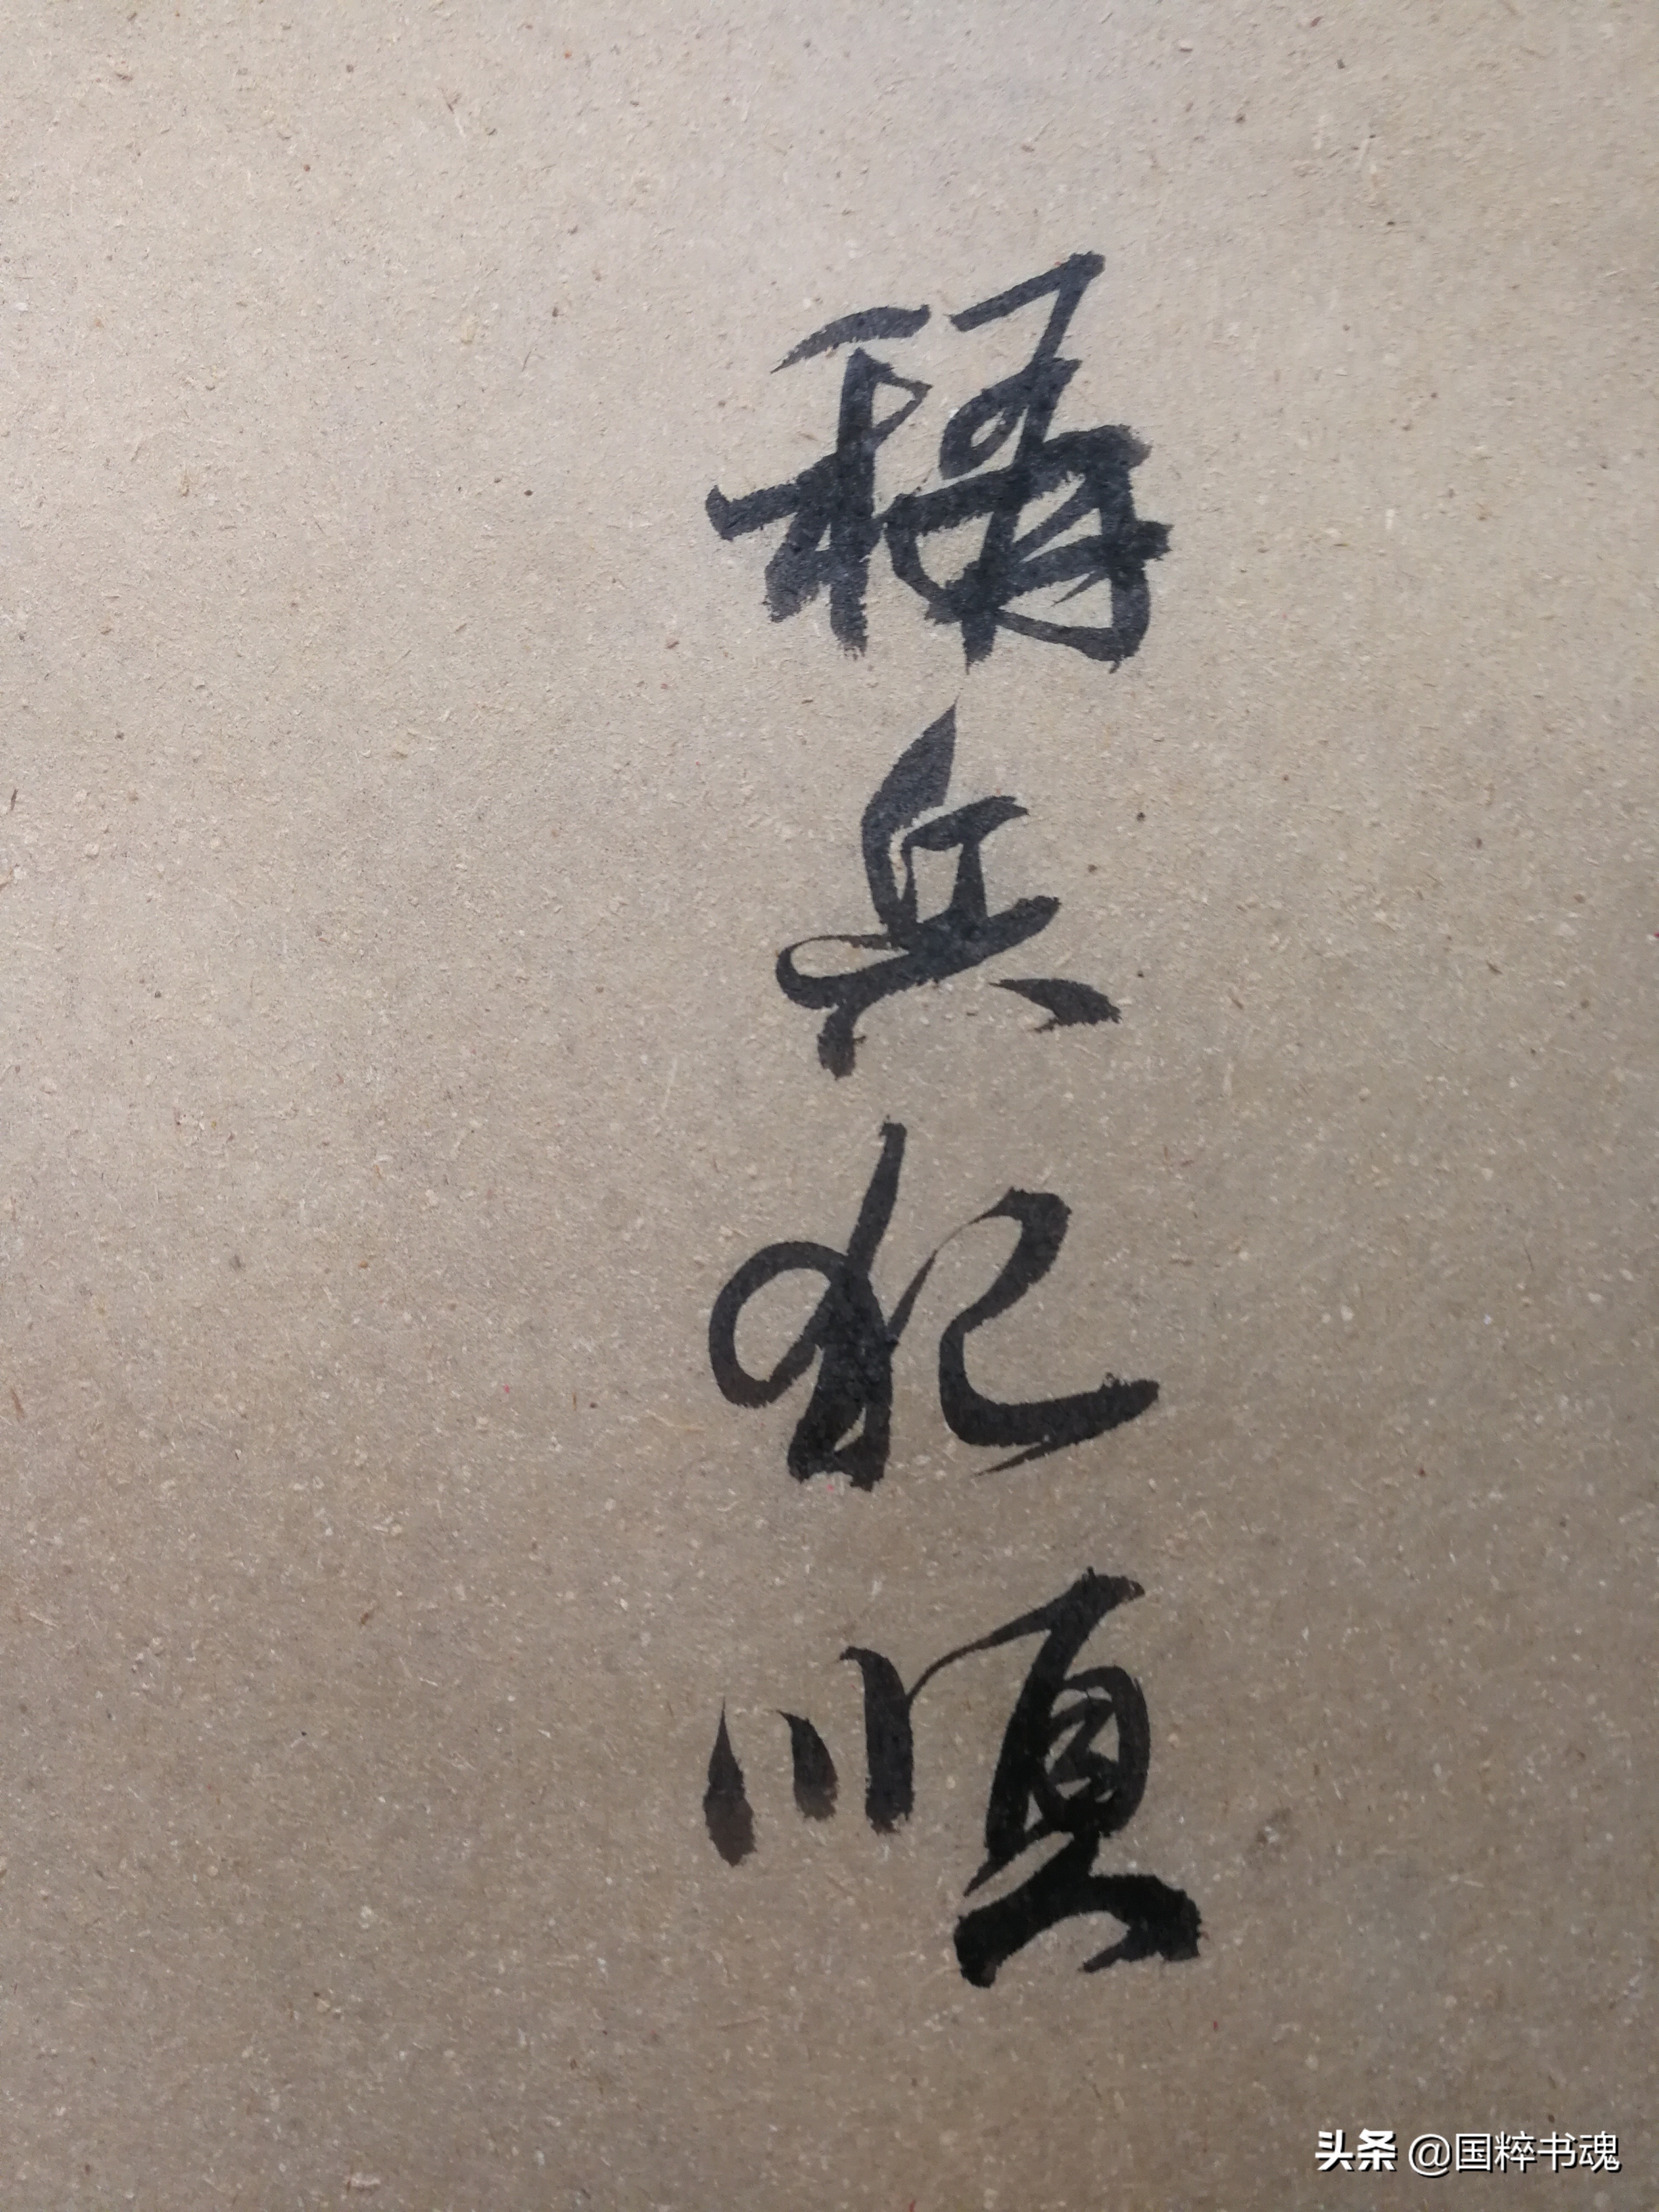 稱兵犯順
头条 @国粹书魂